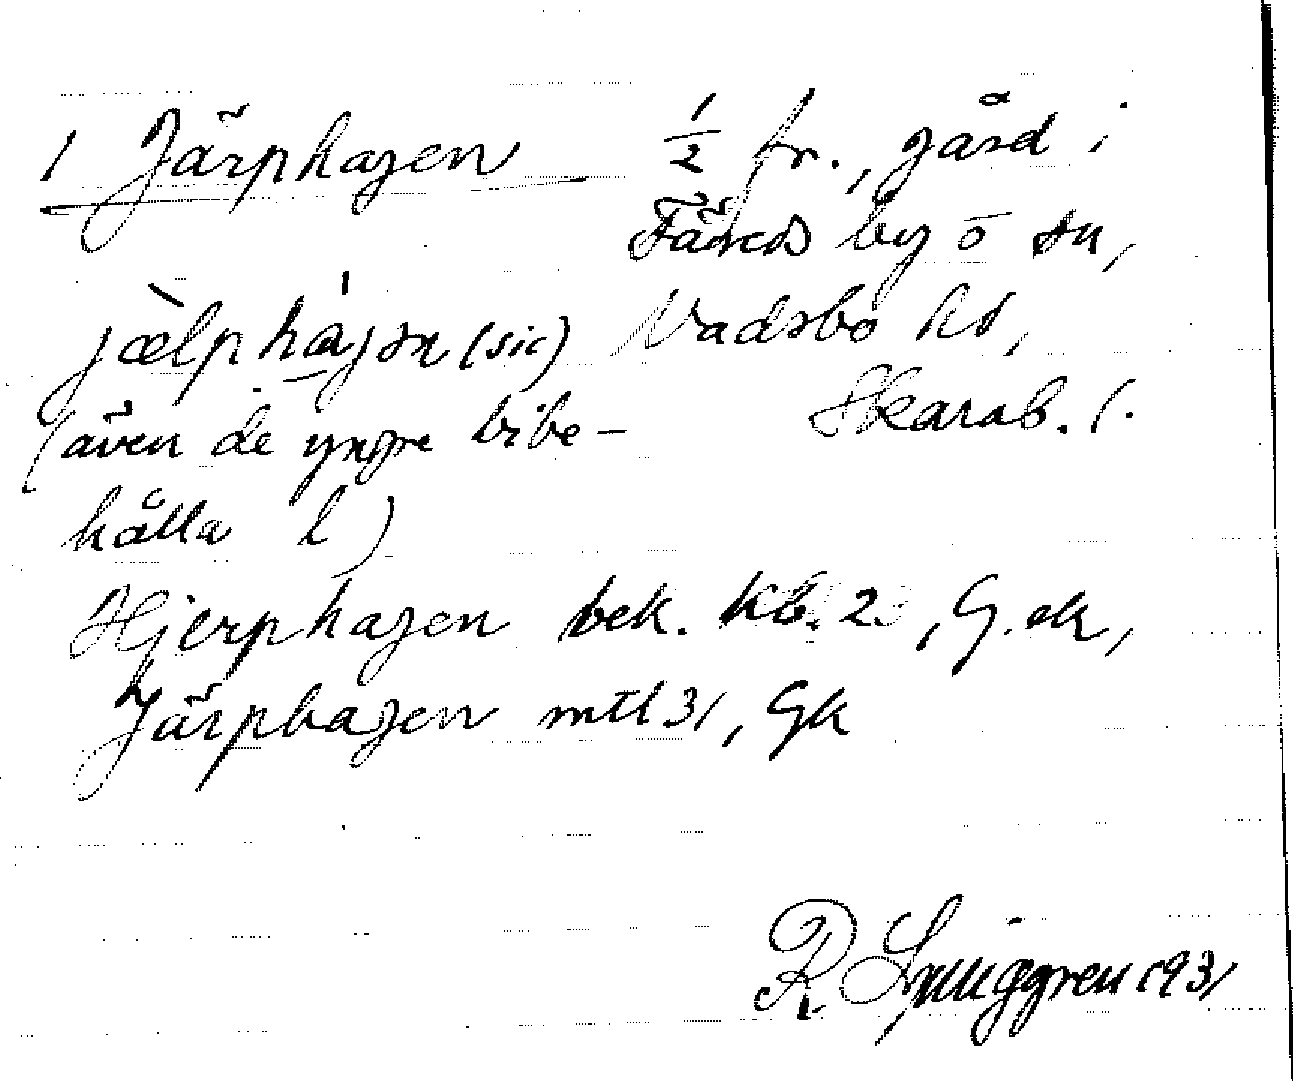 1 Järphagen 1/2 fr., gård i
Färeds by o sn,
jælphaján (sic) Vadsbo hd,
(även de yngre bibe- Skarab. l.
hålla l)
Hjerphagen bek. kb. 2, G.ek,
Järphagen mtl 31, Gk
R Ljunggren 1931